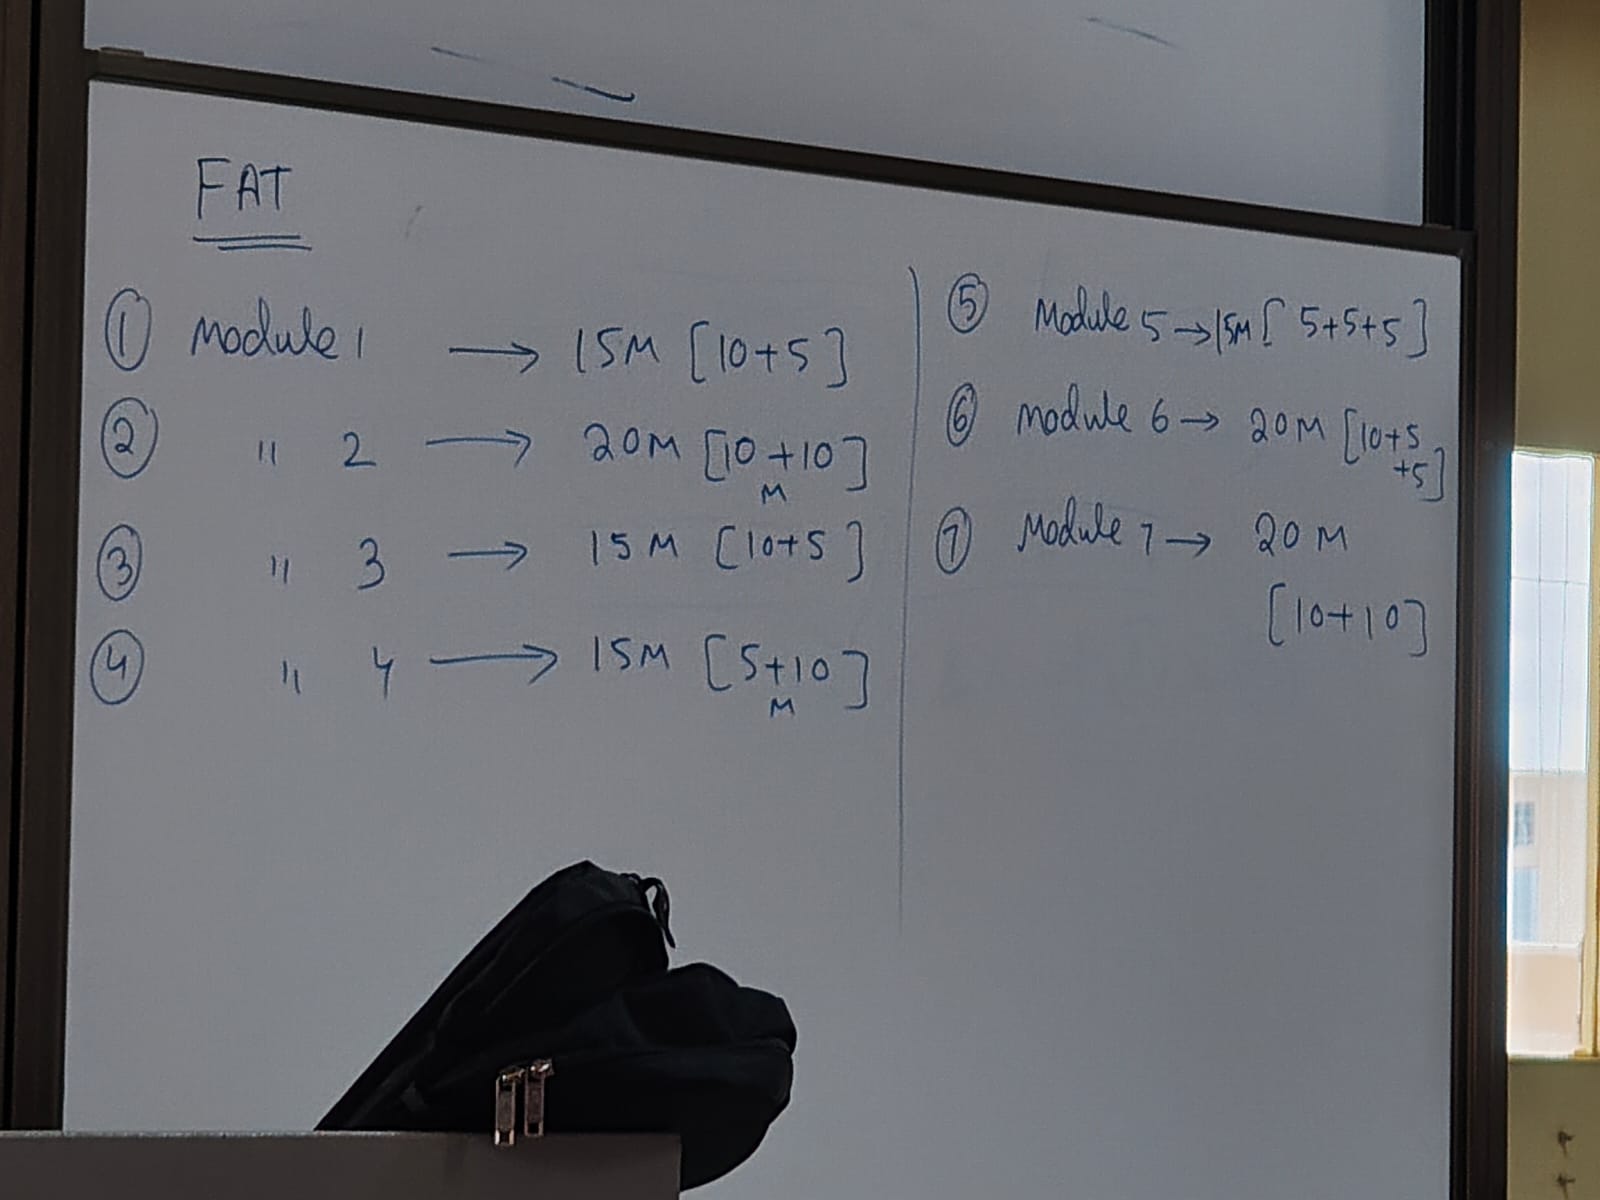 FAT
① Module 1 → 15M [10+5]
② " 2 → 20M [10+10]
M
③ " 3 → 15M [10+5]
④ " 4 → 15M [5+10]
M
⑤ Module 5 → 15M [5+5+5]
⑥ Module 6 → 20M [10+5
+5]
⑦ Module 7 → 20M
[10+10]